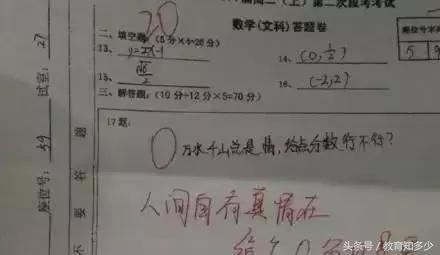 高二(上)第二次段考考试
数学(文科)答题卷
20
二、填空题:(5分×4=20分)
13、y=2x-1
14、(0,1/2)
15、
16、(-2,2)
三、解答题:(10分+12分×5=70分)
17题:
0
万水千山总是情,给点分数行不行?
人间自有真情在
座位号:59
试室:27
不要答题
头条号/教育知多少